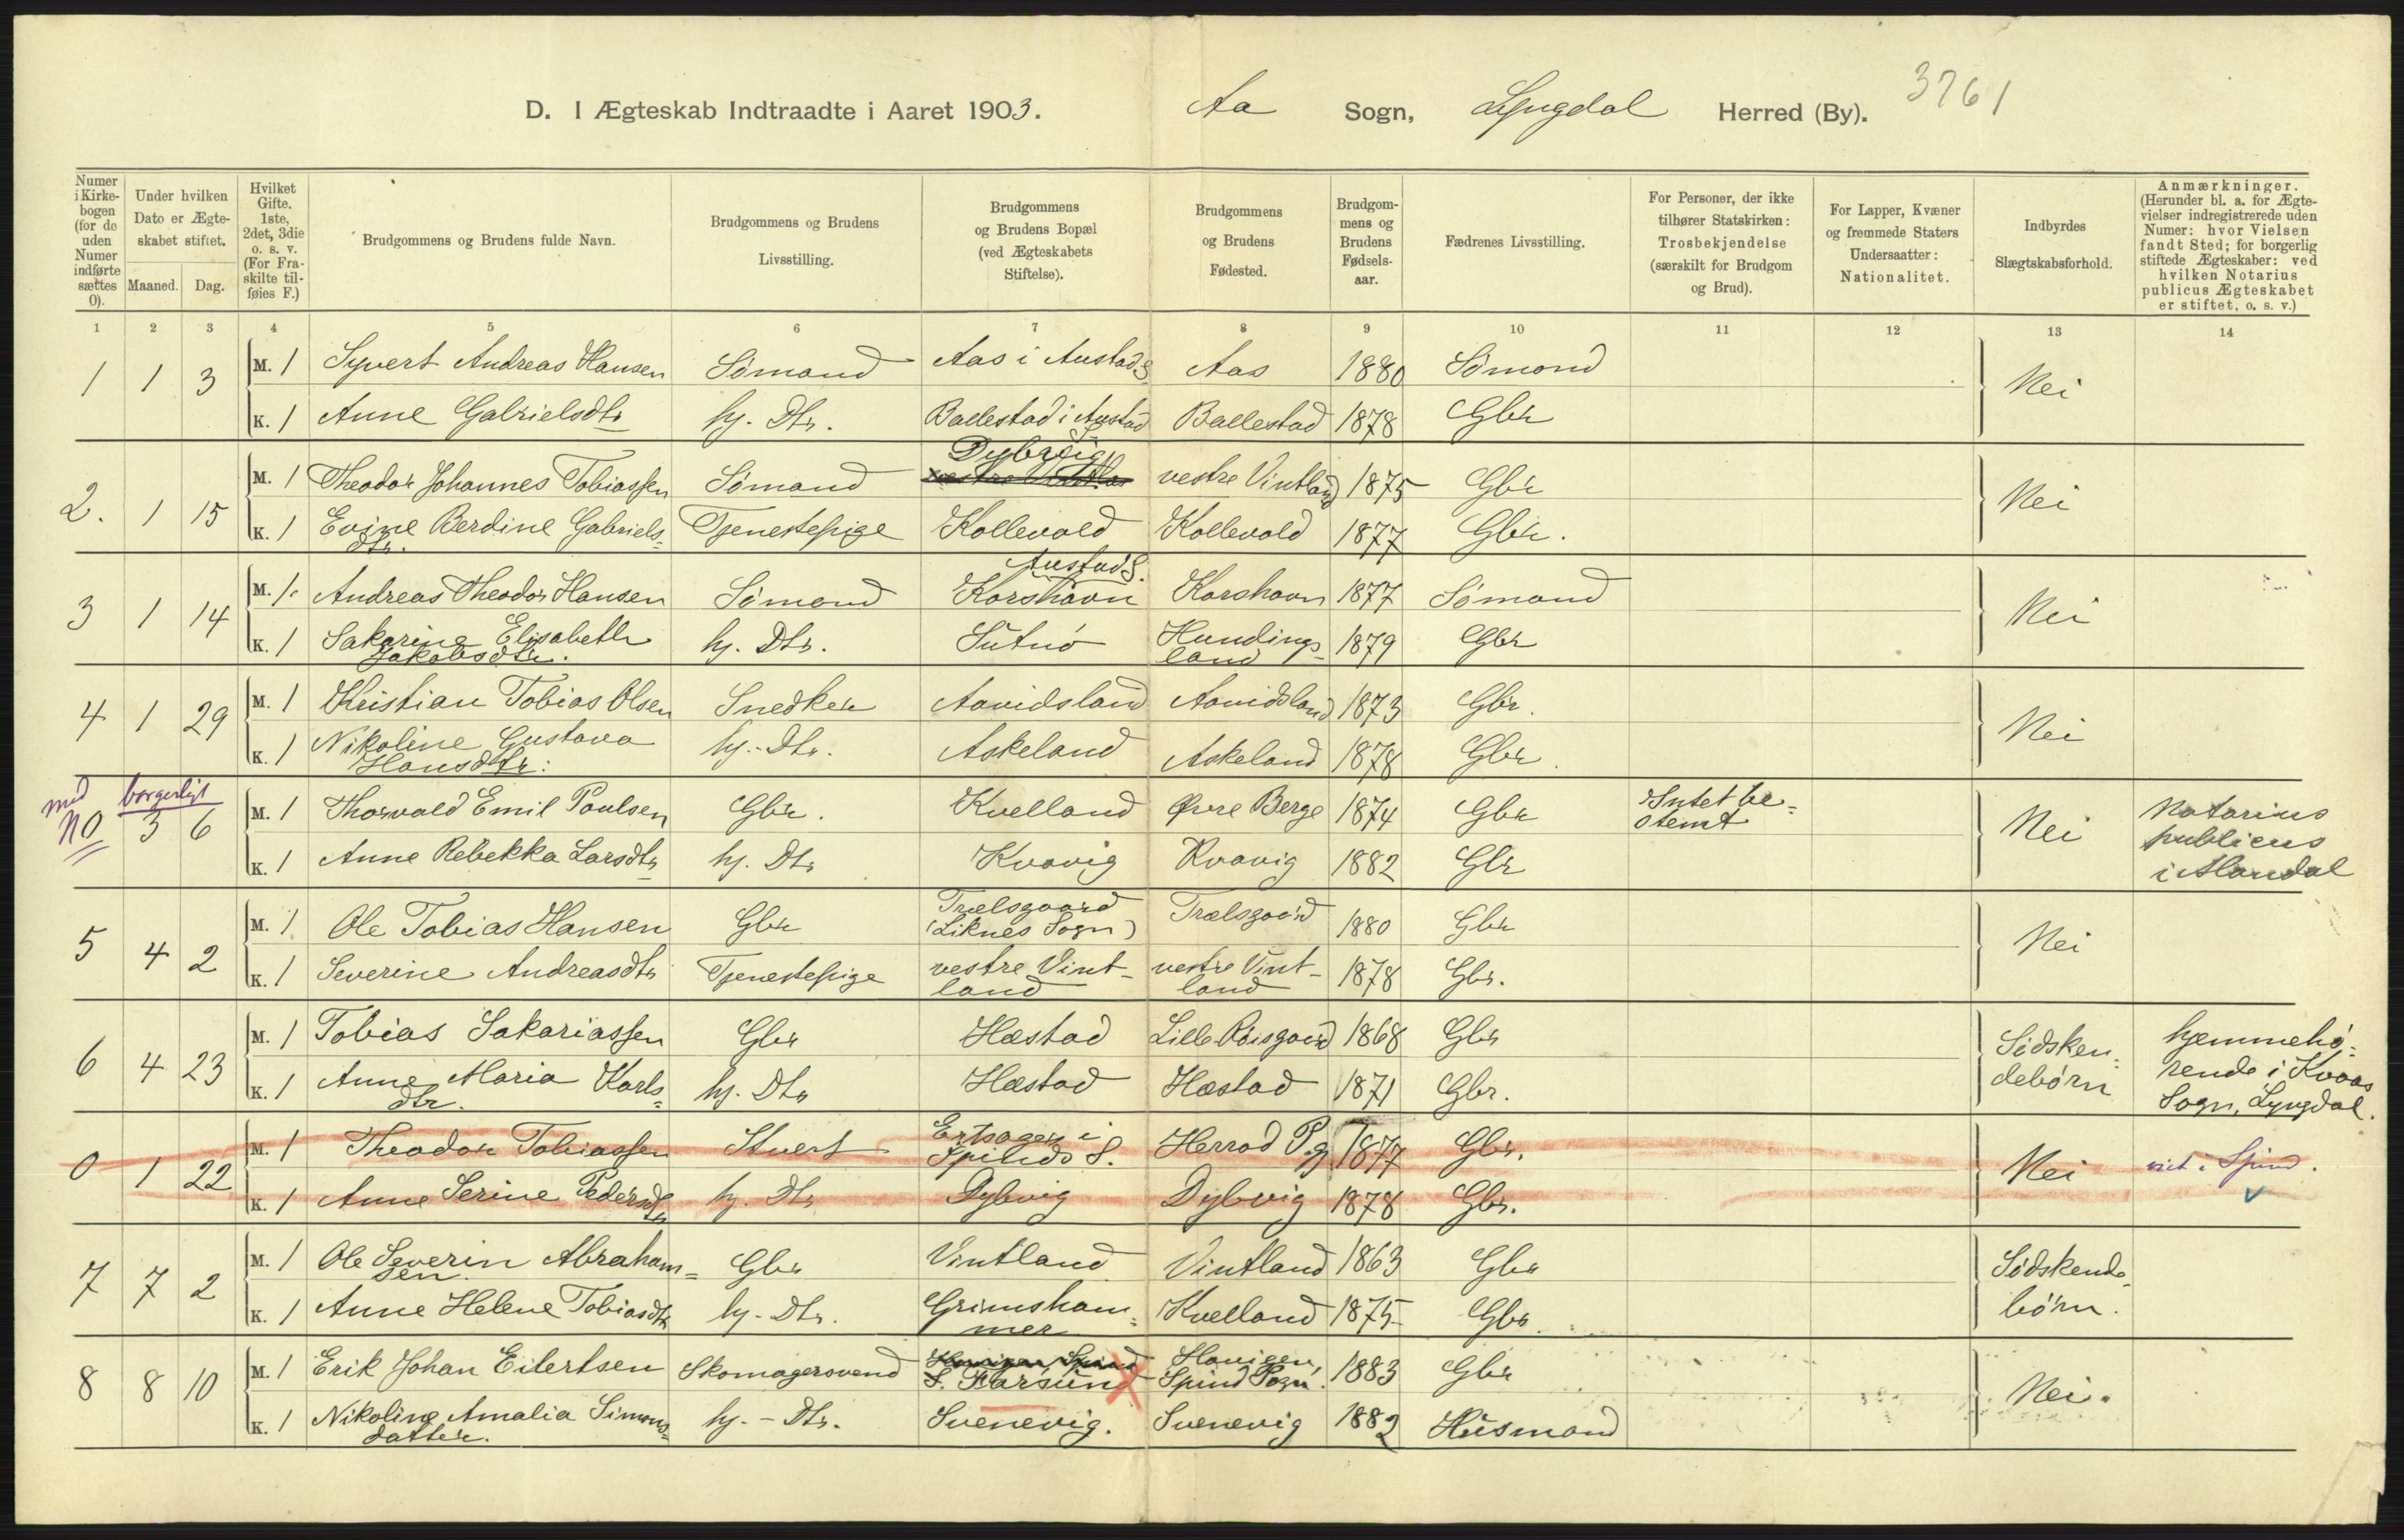 D. I Ægteskab Indtraadte i Aaret 1903. Aa Sogn, Lyngdal Herred (By). 3761
Numer i Kirkebogen (for de uden Numer indførte sættes 0).
Under hvilken Dato er Ægteskabet stiftet.
Maaned. Dag.
Hvilket Gifte. 1ste, 2det, 3die o. s. v. (For Fraskilte tilføies F.)
Brudgommens og Brudens fulde Navn.
Brudgommens og Brudens Livsstilling.
Brudgommens og Brudens Bopæl (ved Ægteskabets Stiftelse).
Brudgommens og Brudens Fødested.
Brudgommens og Brudens Fødselsaar.
Fædrenes Livsstilling.
For Personer, der ikke tilhører Statskirken: Trosbekjendelse (særskilt for Brudgom og Brud).
For Lapper, Kvæner og fremmede Staters Undersaatter: Nationalitet.
Indbyrdes Slægtskabsforhold.
Anmærkninger. (Herunder bl. a. for Ægtevielser indregistrerede uden Numer: hvor Vielsen fandt Sted; for borgerlig stiftede Ægteskaber: ved hvilken Notarius publicus Ægteskabet er stiftet, o. s. v.)
1 2 3 4 5 6 7 8 9 10 11 12 13 14
1 1 3 M. 1 Syvert Andreas Hansen Sømand Aas i Austad S. Aas 1880 Sømand Nei
K. 1 Anne Gabrielsdtr hj. Dtr. Ballestad i Austad S. Ballestad 1878 Gbr
2. 1 15 M. 1 Theodor Johannes Tobiassen Sømand Dybvig vestre Vintland 1875 Gbr Nei
K. 1 Evine Berdine Gabrielsdtr. Tjenestepige Kollevold Kollevold 1877 Gbr.
3 1 14 M. 1. Andreas Theodor Hansen Sømand Austad S. Korshavn Korshavn 1877 Sømand Nei
K. 1 Sakarine Elisabeth Jakobsdtr. hj. Dtr. Sutnø Hundingsland 1879 Gbr
4 1 29 M. 1 Kristian Tobias Olsen Snedker Aavidsland Aavidsland 1873 Gbr. Nei
K. 1 Nikoline Gustava Hansdtr. hj.-Dtr. Askeland Askeland 1878 Gbr.
med borgerligt
N0 3 6 M. 1 Thorvald Emil Poulsen Gbr. Kvelland Øvre Berge 1874 Gbr Intet bestemt Nei Notarius publicus i Mandal
K. 1 Anne Rebekka Larsdtr hj. Dtr Kvavig Kvavig 1882 Gbr
5 4 2 M. 1 Ole Tobias Hansen Gbr Trælsgaard (Liknes Sogn) Trælsgaard 1880 Gbr Nei
K. 1 Severine Andreasdtr Tjenestepige vestre Vintland vestre Vintland 1878 Gbr.
6 4 23 M. 1 Tobias Sakariassen Gbr Hæstad Lille Røisgaard 1868 Gbr Sødskendebørn hjemmehørende i Kvaas Sogn, Lyngdal.
K. 1 Anne Maria Karlsdtr. hj. Dtr Hæstad Hæstad 1871 Gbr.
0 1 22 M. 1 Theodor Tobiassen Stuert i Spinds S. Herrad Pg 1877 Gbr. Nei viet i Spind.
K. 1 Anne Serine Pedersdtr hj. Dtr Dybvig Dybvig 1878 Gbr.
7 7 2 M. 1 Ole Severin Abrahamsen. Gbr Vintland Vintland 1863 Gbr Sødskendebørn.
K. 1 Anne Helene Tobiasdtr hj-Dtr. Grimshammer Kvelland 1875 Gbr.
8 8 10 M. 1 Erik Johan Eilertsen Skomagersvend Farsund Havigen, Spind Sogn. 1883 Gbr Nei.
K. 1 Nikoline Amalia Simonsdatter. hj.-Dtr. Svenevig. Svenevig 1882 Husmand